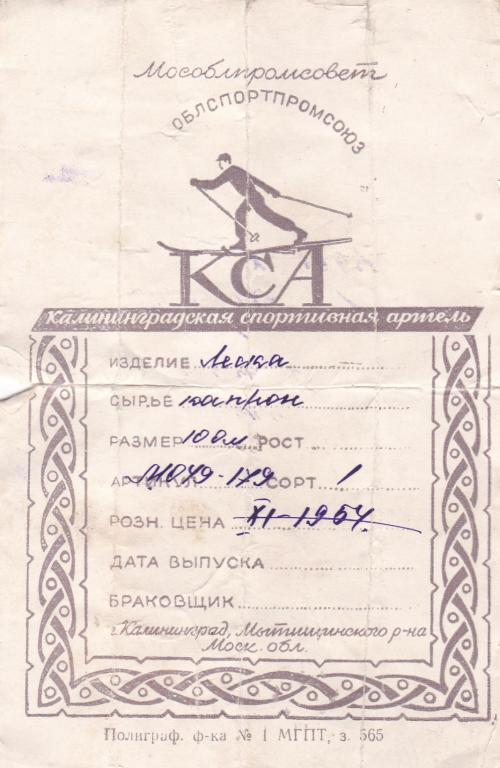 Мособлпромсовет
ОБЛСПОРТПРОМСОЮЗ
КСА
Калининградская спортивная артель
ИЗДЕЛИЕ Леска
СЫРЬЕ капрон
РАЗМЕР 100м РОСТ
АРТИКУЛ 1049-179 СОРТ 1
РОЗН. ЦЕНА XI-1954
ДАТА ВЫПУСКА
БРАКОВЩИК
г. Калининград, Мытищинского р-на
Моск. обл.
Полиграф. ф-ка № 1 МГПТ, з. 565